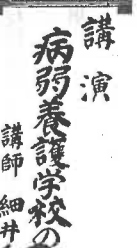 講演
病弱養護学校の
講師 細井